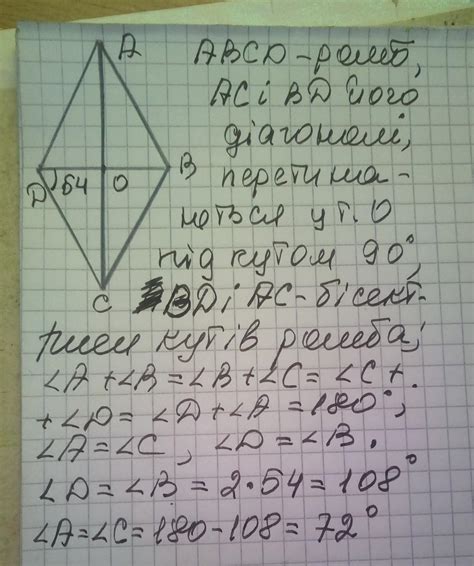 A
ABCD-ромб,
AC і BD його
діагоналі,
D 54 O B
перетина-
ються у т. O
під кутом 90°,
C
BD і AC-бісект-
риси кутів ромба;
∠A+∠B=∠B+∠C=∠C+
+∠D=∠D+∠A=180°;
∠A=∠C, ∠D=∠B.
∠D=∠B=2·54=108°
∠A=∠C=180-108=72°